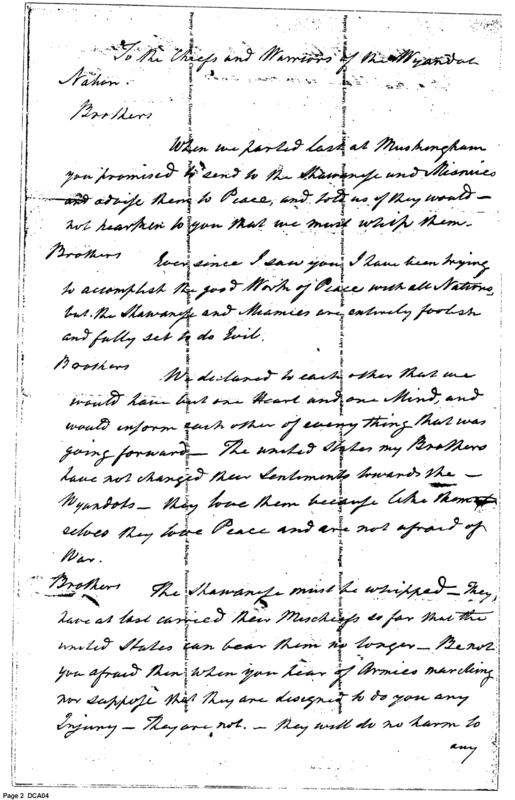 To the Chiefs and Warriors of the Wyandot
Nation.
Brothers
When we parted last at Muskingham
you promised to send to the Shawanese and Miamies
and advise them to Peace, and told us if they would –
not hearken to you that we must whip them.
Brothers Ever since I saw you I have been trying
to accomplish the good Work of Peace with all Nations,
but the Shawanese and Miamies are entirely foolish
and fully set to do Evil.
Brothers
We declared to each other that we
would have but one Heart and one Mind, and
would inform each other of every thing that was
going forward – The united States my Brothers
have not changed their Sentiments towards the –
Wyandots – they love them because like them
selves they love Peace and are not afraid of
War.
Brothers The Shawanese must be whipped – They,
have at last carried their Mischiefs so far that the
united States can bear them no longer – Be not
you afraid then when you hear of Armies marching
nor suppose that they are designed to do you any
Injury – They are not. – they will do no harm to
any
Page 2 DCA04